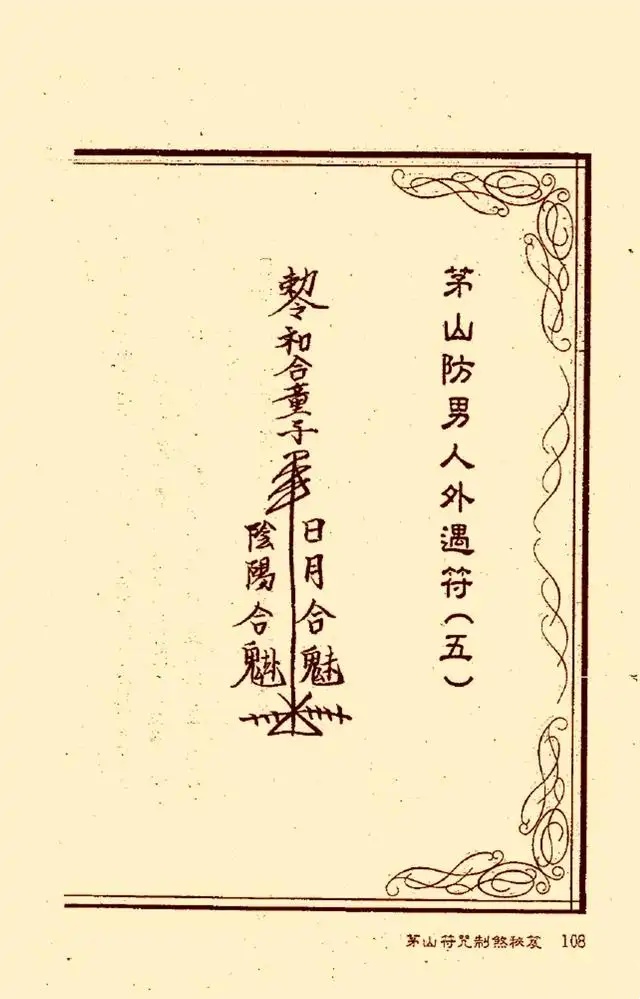 茅山防男人外遇符(五)
勅令和合童子
日月合魅
陰陽合
茅山符咒制煞秘笈 108